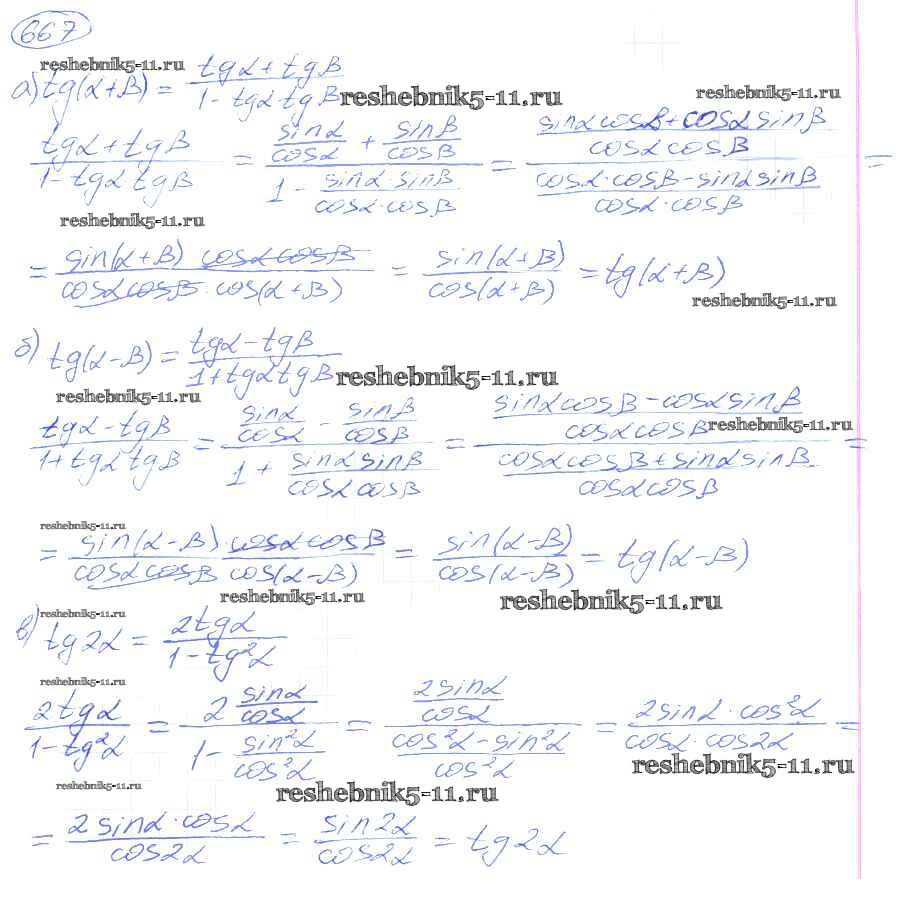 667
reshebnik5-11.ru
а) tg(α+β) = (tgα + tgβ)/(1 - tgα tgβ) reshebnik5-11.ru reshebnik5-11.ru
(tgα + tgβ)/(1 - tgα tgβ) = (sinα/cosα + sinβ/cosβ)/(1 - (sinα·sinβ)/(cosα·cosβ)) = ((sinα cosβ + cosα sinβ)/(cosα cosβ))/((cosα·cosβ - sinα sinβ)/(cosα·cosβ)) =
reshebnik5-11.ru
= (sin(α+β) cosα cosβ)/(cosα cosβ·cos(α+β)) = sin(α+β)/cos(α+β) = tg(α+β)
reshebnik5-11.ru
б) tg(α-β) = (tgα - tgβ)/(1 + tgα tgβ) reshebnik5-11.ru
reshebnik5-11.ru
(tgα - tgβ)/(1 + tgα tgβ) = (sinα/cosα - sinβ/cosβ)/(1 + (sinα sinβ)/(cosα cosβ)) = ((sinα cosβ - cosα sinβ)/(cosα cosβ))/((cosα cosβ + sinα sinβ)/(cosα cosβ)) =
reshebnik5-11.ru
reshebnik5-11.ru
= (sin(α-β)·cosα cosβ)/(cosα cosβ cos(α-β)) = sin(α-β)/cos(α-β) = tg(α-β)
reshebnik5-11.ru reshebnik5-11.ru
reshebnik5-11.ru
в) tg2α = 2tgα/(1 - tg²α)
reshebnik5-11.ru
2tgα/(1 - tg²α) = (2 sinα/cosα)/(1 - sin²α/cos²α) = (2sinα/cosα)/((cos²α - sin²α)/cos²α) = (2sinα·cos²α)/(cosα·cos2α) =
reshebnik5-11.ru
reshebnik5-11.ru reshebnik5-11.ru
= (2sinα·cosα)/cos2α = sin2α/cos2α = tg2α